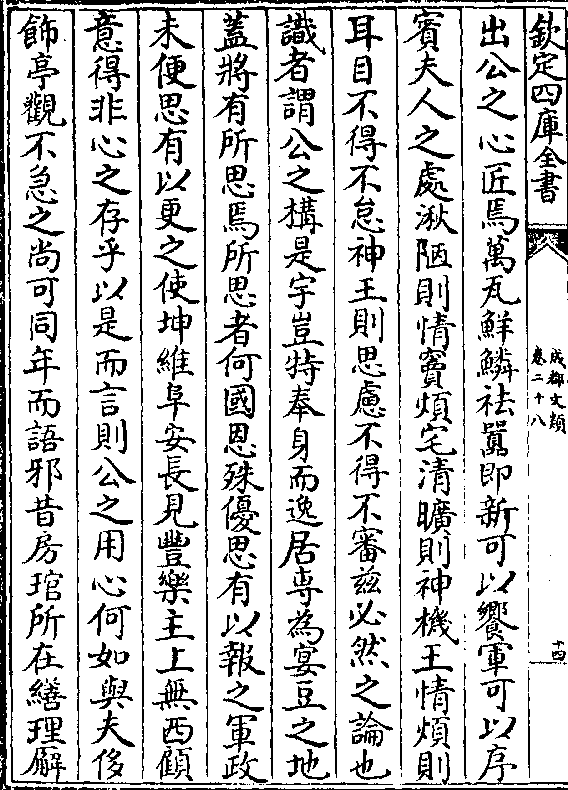 欽定四庫全書
成都文類
卷二十八
十四
出公之心匠焉萬瓦鮮鱗祛嚣即新可以饗軍可以序
賓夫人之處湫陋則情竇煩宅清曠則神機王情煩則
耳目不得不怠神王則思慮不得不審茲必然之論也
識者謂公之構是宇豈特奉身而逸居専為宴豆之地
蓋將有所思焉所思者何國恩殊優思有以報之軍政
未便思有以更之使坤維阜安長見豐樂主上無西顧
意得非心之存乎以是而言則公之用心何如與夫侈
飾亭觀不急之尚可同年而語邪昔房琯所在繕理廨